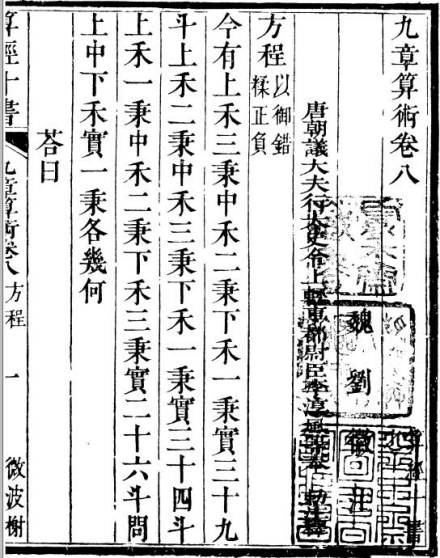 九章算術卷八
魏劉徽注
唐朝議大夫行太史令上輕車都尉臣李淳風等奉勑注釋
方程以御錯糅正負
今有上禾三秉中禾二秉下禾一秉實三十九
斗上禾二秉中禾三秉下禾一秉實三十四斗
上禾一秉中禾二秉下禾三秉實二十六斗問
上中下禾實一秉各幾何
荅曰
算經十書
九章算術卷八 方程 一 微波榭